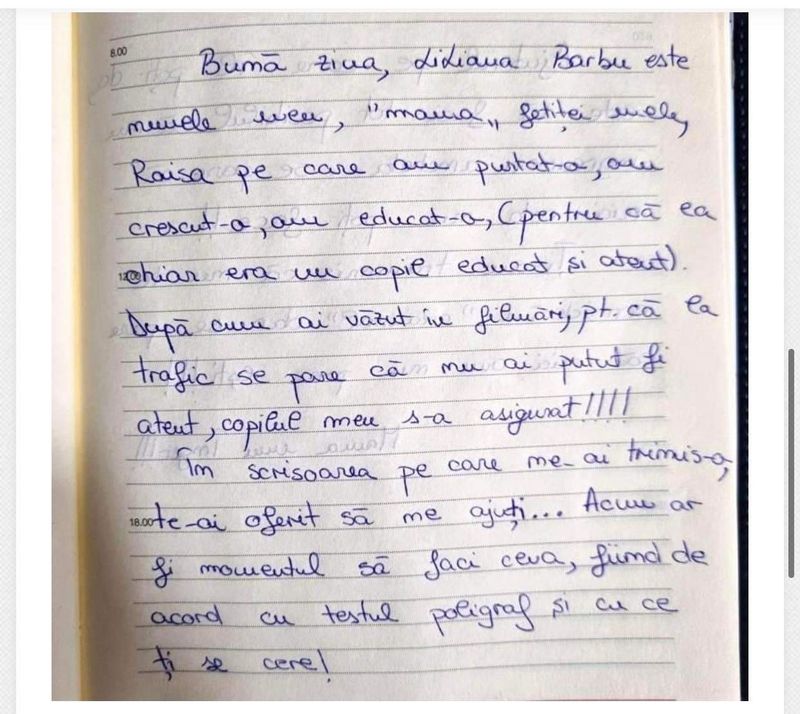 8.00
Bună ziua, Liliana Barbu este
numele meu, "mama„ fetiței mele,
Raisa pe care am purtat-o, am
crescut-o, am educat-o, (pentru că ea
12.00 chiar era un copil educat și atent).
După cum ai văzut în filmări, pt. că la
trafic se pare că nu ai putut fi
atent, copilul meu s-a asigurat!!!!
În scrisoarea pe care me-ai trimis-o,
18.00 te-ai oferit să me ajuți... Acum ar
fi momentul să faci ceva, fiind de
acord cu testul poligraf și cu ce
ți se cere!